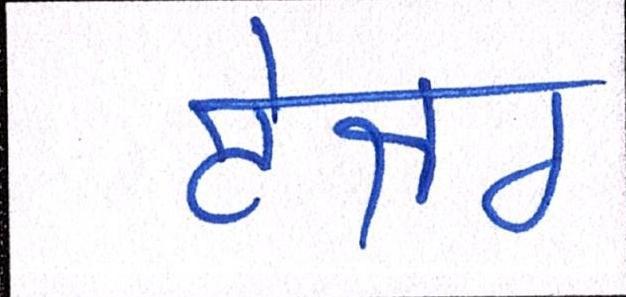 ਟੇਜਰ